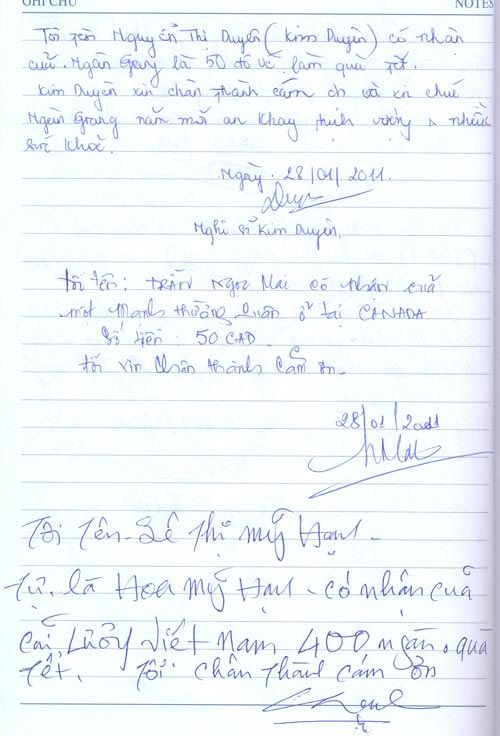 GHI CHÚ NOTES
Tôi tên Nguyễn Thị Duyên (Kim Duyên) có nhận
của Ngân Giang là 50 đô về làm quà Tết.
Kim Duyên xin chân thành cám ơn và xin chúc
Ngân Giang năm mới an khang thịnh vượng nhiều
sức khoẻ.
Ngày 28/01/2011.
Nghệ sĩ Kim Duyên,
tôi tên: TRẦN Ngọc Mai có nhận của
một Mạnh thường quân ở tại CANADA
Số tiền: 50 CAD
tôi xin chân thành Cám ơn.
28/01/2011
Tôi Tên Lê Thị Mỹ Hạnh
Tự là Hoa Mỹ Hạnh - có nhận của
cải Lương việt Nam 400 ngàn, quà
Tết. Tôi chân Thành cám ơn